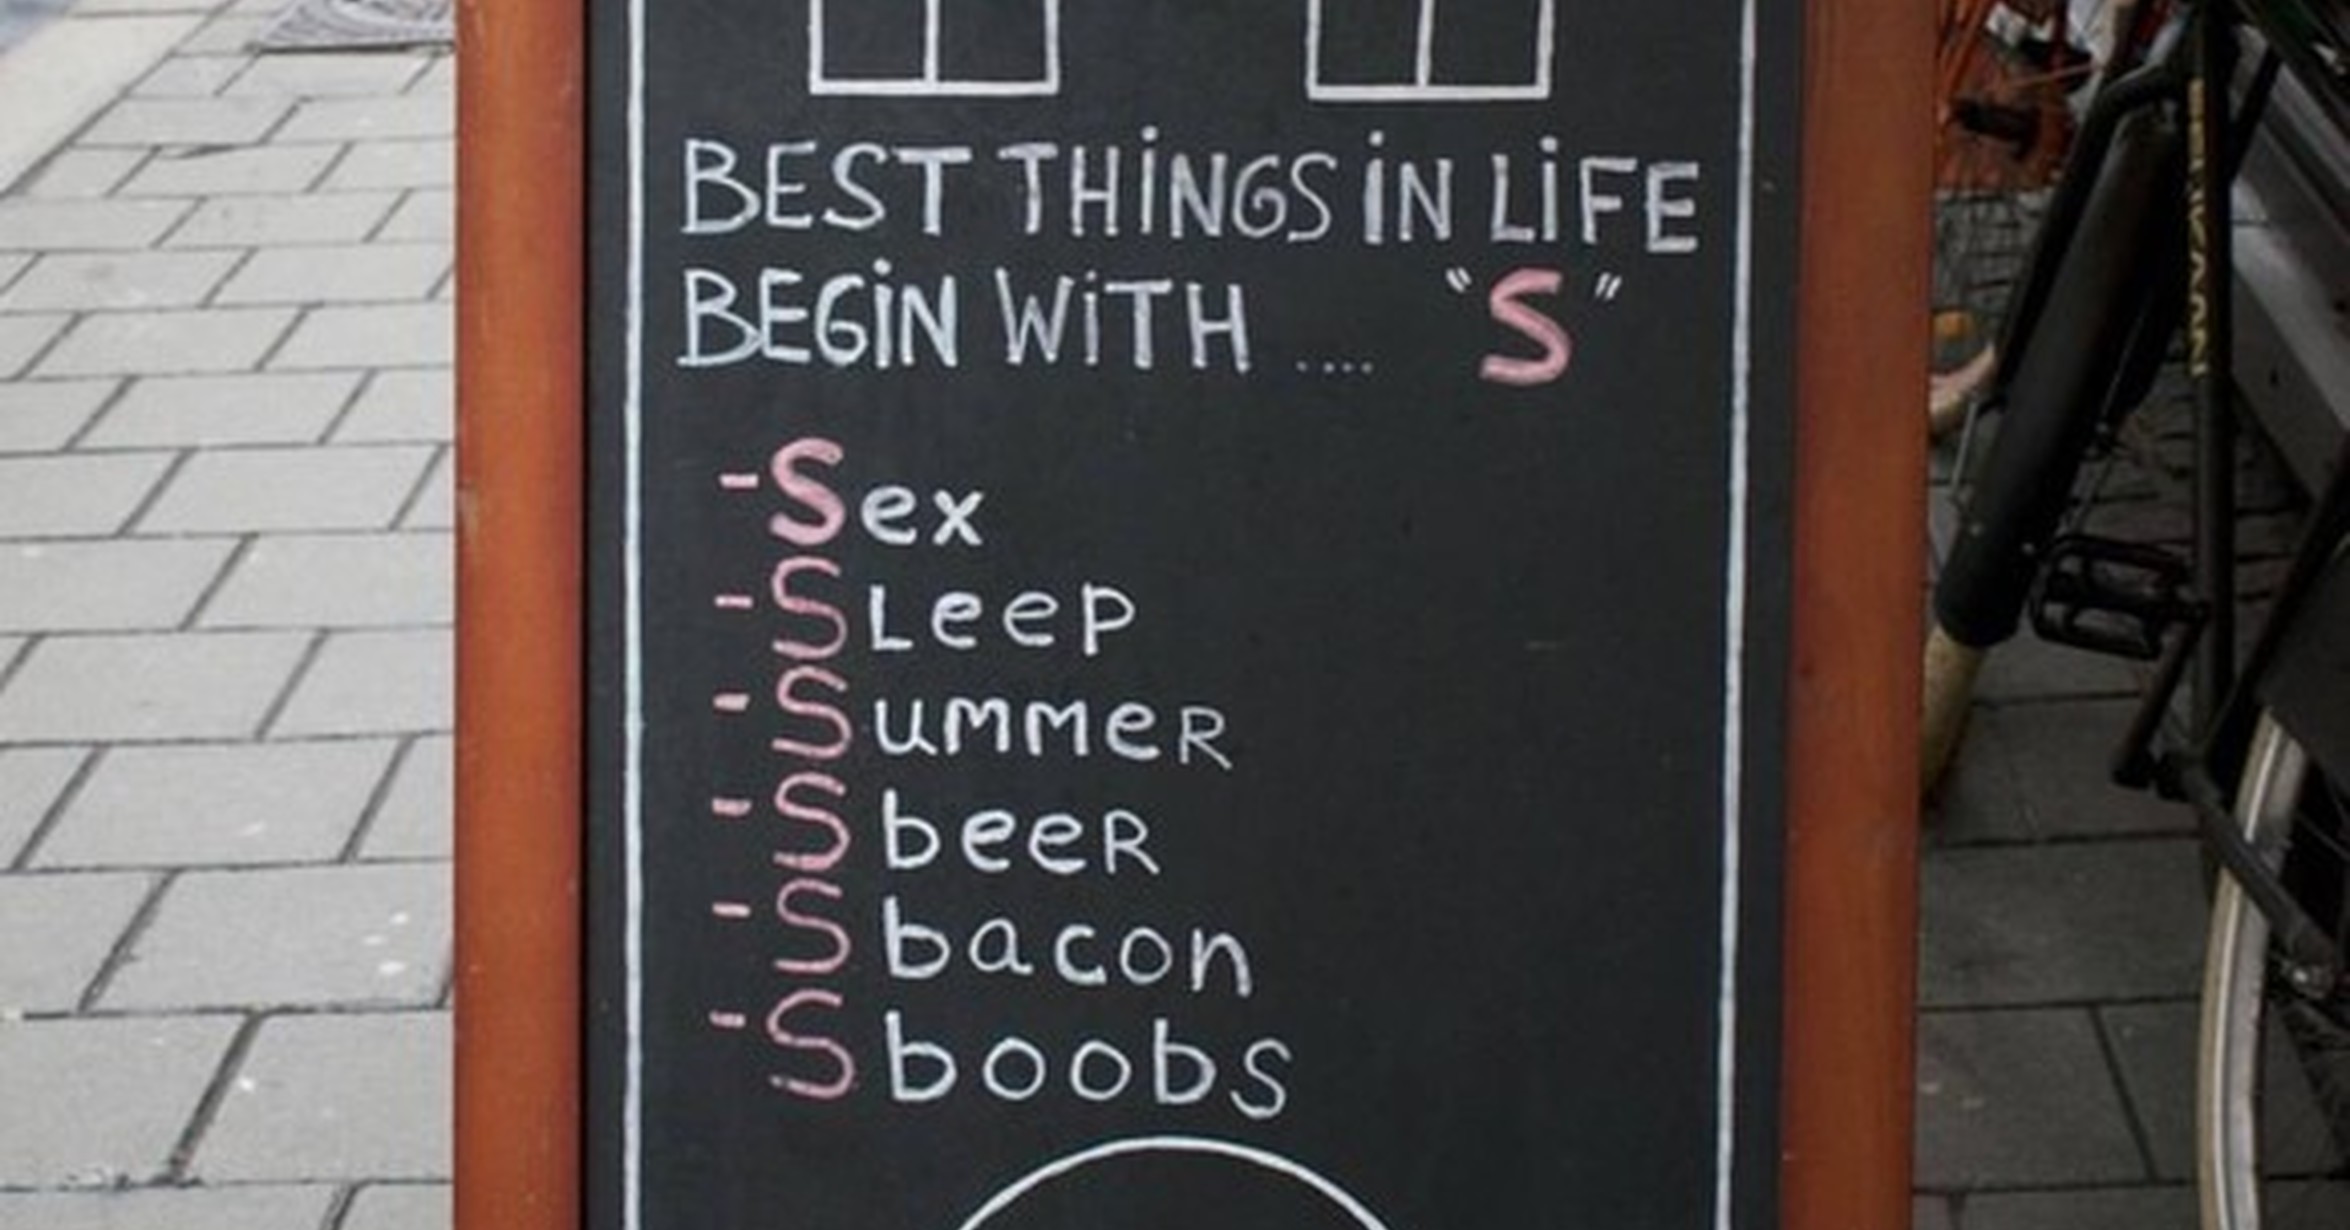 BEST THINGS IN LIFE
BEGIN WITH .... "S"
- Sex
- SLeep
- SummeR
- SbeeR
- Sbacon
- Sboobs